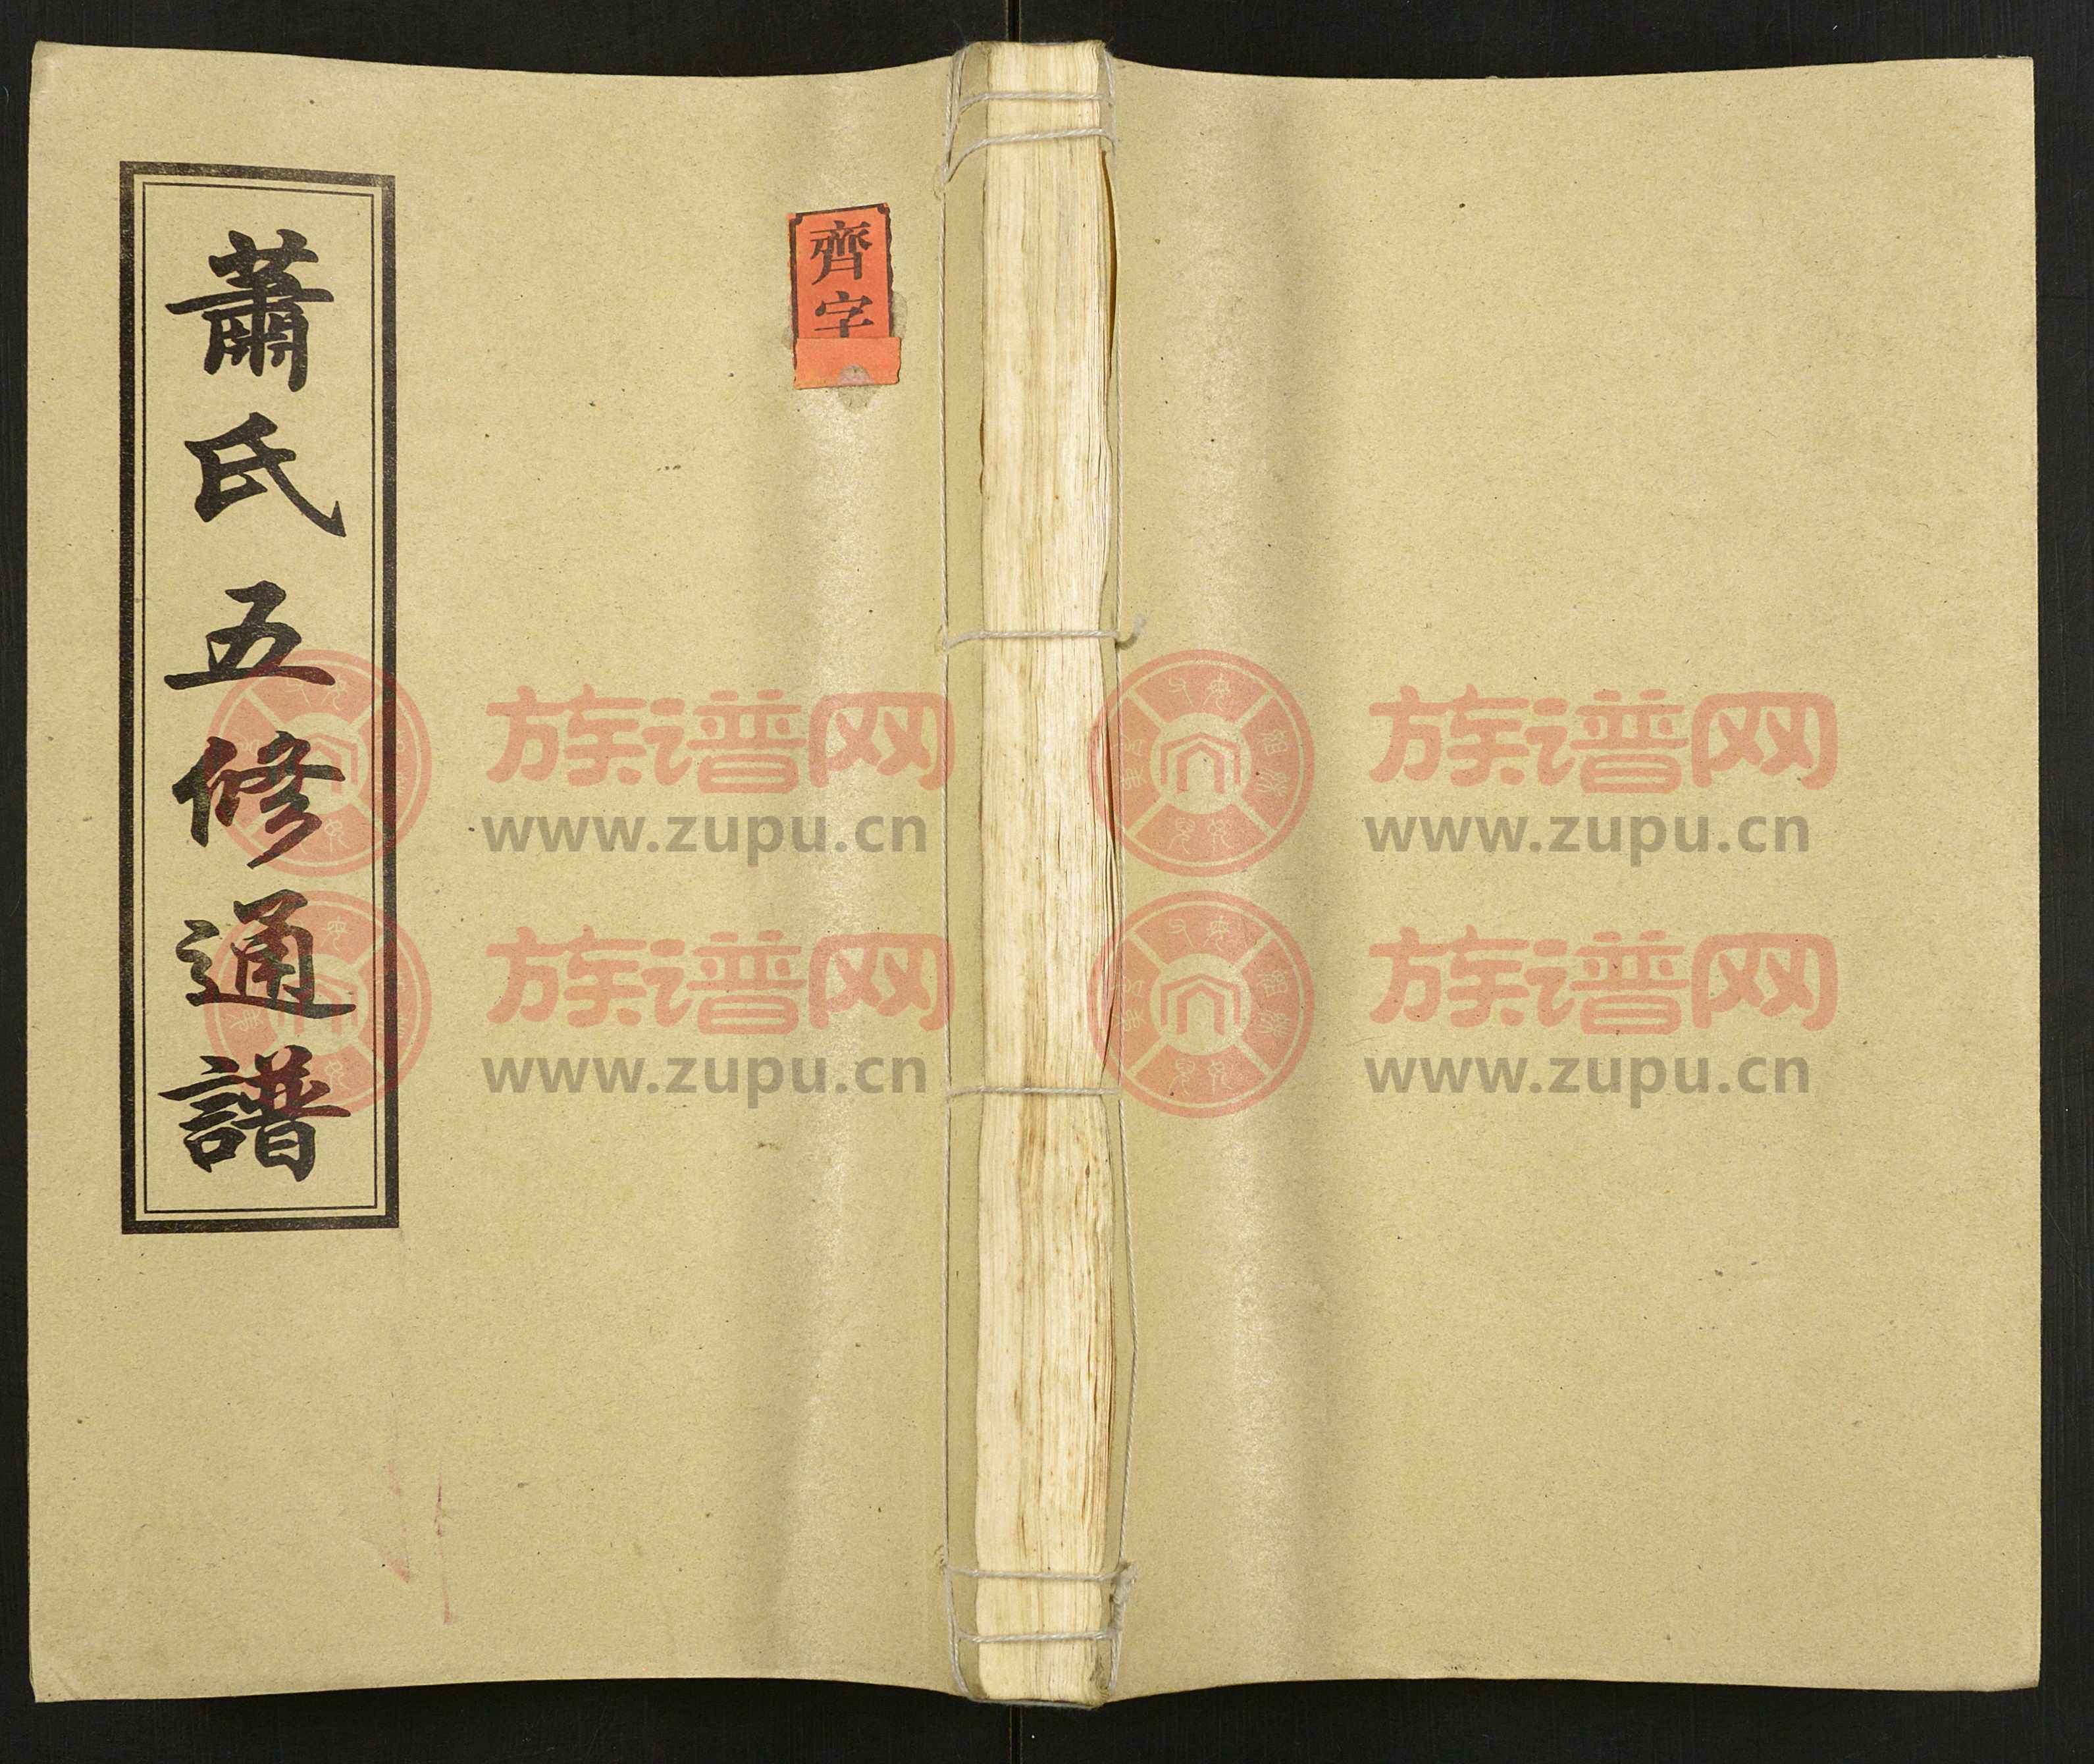 蕭氏五修通譜
齊字
族谱网
www.zupu.cn
族谱网
www.zupu.cn
族谱网
www.zupu.cn
族谱网
www.zupu.cn